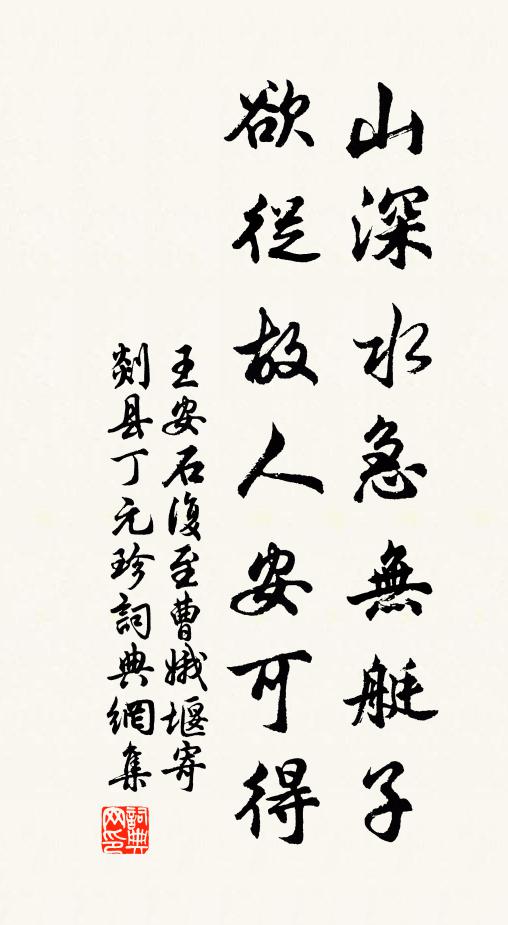 山深水急無艇子
欲從故人安可得
王安石復至曹娥堰寄
剡县丁元珍詞典網集
詞典
网印